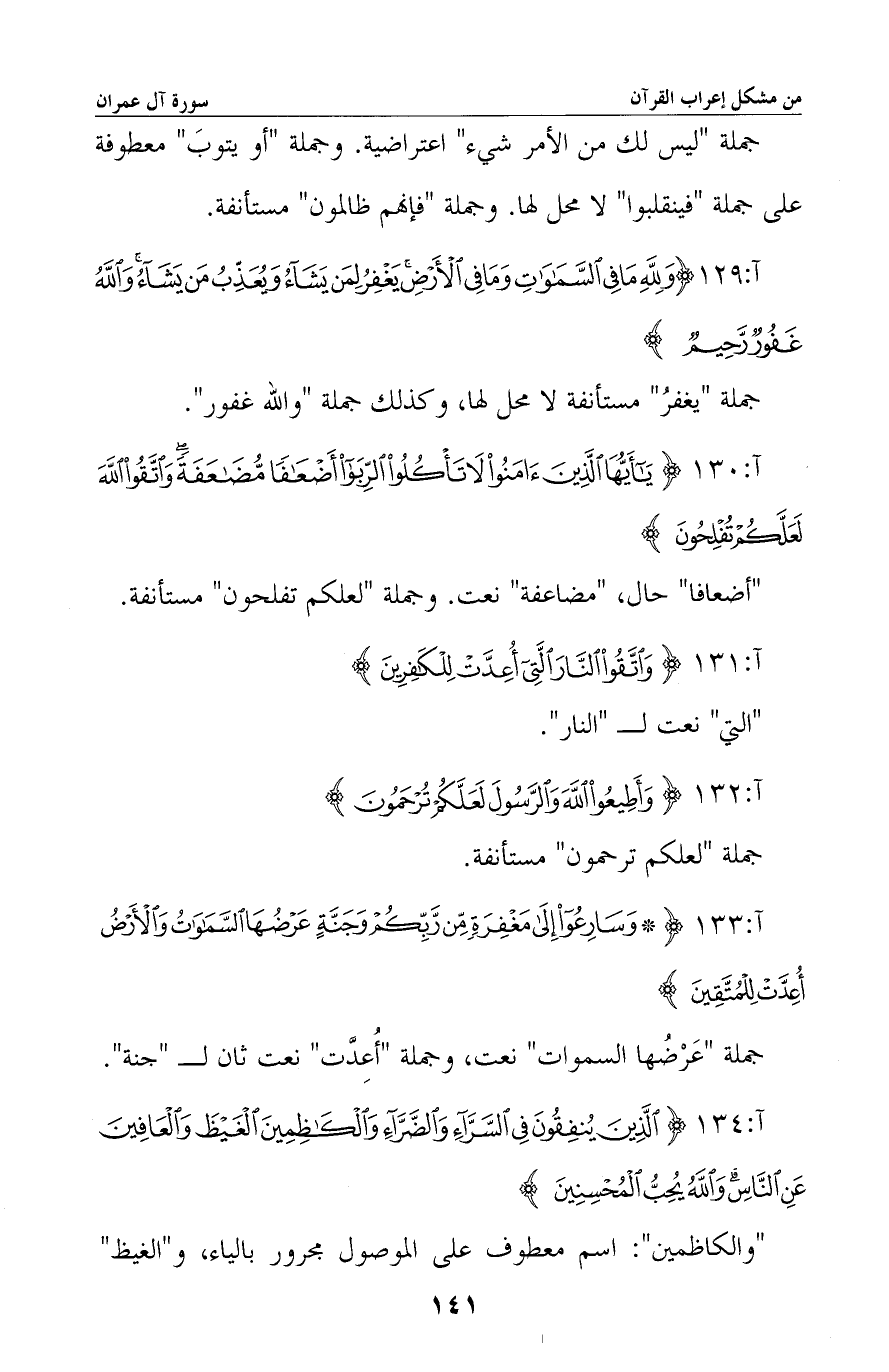 من مشكل إعراب القرآن سورة آل عمران
جملة "ليس لك من الأمر شيء" اعتراضية. وجملة "أو يتوبَ" معطوفة
على جملة "فينقلبوا" لا محل لها. وجملة "فإنهم ظالمون" مستأنفة.
آ:١٢٩ ﴿وَلِلَّهِ مَا فِي ٱلسَّمَٰوَٰتِ وَمَا فِي ٱلْأَرْضِۚ يَغْفِرُ لِمَن يَشَآءُ وَيُعَذِّبُ مَن يَشَآءُۚ وَٱللَّهُ
غَفُورٌ رَّحِيمٌ ﴾
جملة "يغفرُ" مستأنفة لا محل لها، وكذلك جملة "والله غفور".
آ:١٣٠ ﴿ يَٰٓأَيُّهَا ٱلَّذِينَ ءَامَنُوا۟ لَا تَأْكُلُوا۟ ٱلرِّبَوٰٓا۟ أَضْعَٰفًا مُّضَٰعَفَةًۖ وَٱتَّقُوا۟ ٱللَّهَ
لَعَلَّكُمْ تُفْلِحُونَ ﴾
"أضعافا" حال، "مضاعفة" نعت. وجملة "لعلكم تفلحون" مستأنفة.
آ:١٣١ ﴿ وَٱتَّقُوا۟ ٱلنَّارَ ٱلَّتِيٓ أُعِدَّتْ لِلْكَٰفِرِينَ ﴾
"التي" نعت لـــ "النار".
آ:١٣٢ ﴿ وَأَطِيعُوا۟ ٱللَّهَ وَٱلرَّسُولَ لَعَلَّكُمْ تُرْحَمُونَ ﴾
جملة "لعلكم ترحمون" مستأنفة.
آ:١٣٣ ﴿ * وَسَارِعُوٓا۟ إِلَىٰ مَغْفِرَةٍ مِّن رَّبِّكُمْ وَجَنَّةٍ عَرْضُهَا ٱلسَّمَٰوَٰتُ وَٱلْأَرْضُ
أُعِدَّتْ لِلْمُتَّقِينَ ﴾
جملة "عَرْضُها السموات" نعت، وجملة "أُعِدَّت" نعت ثان لـــ "جنة".
آ:١٣٤ ﴿ ٱلَّذِينَ يُنفِقُونَ فِي ٱلسَّرَّآءِ وَٱلضَّرَّآءِ وَٱلْكَٰظِمِينَ ٱلْغَيْظَ وَٱلْعَافِينَ
عَنِ ٱلنَّاسِۗ وَٱللَّهُ يُحِبُّ ٱلْمُحْسِنِينَ ﴾
"والكاظمين": اسم معطوف على الموصول مجرور بالياء، و"الغيظ"
١٤١